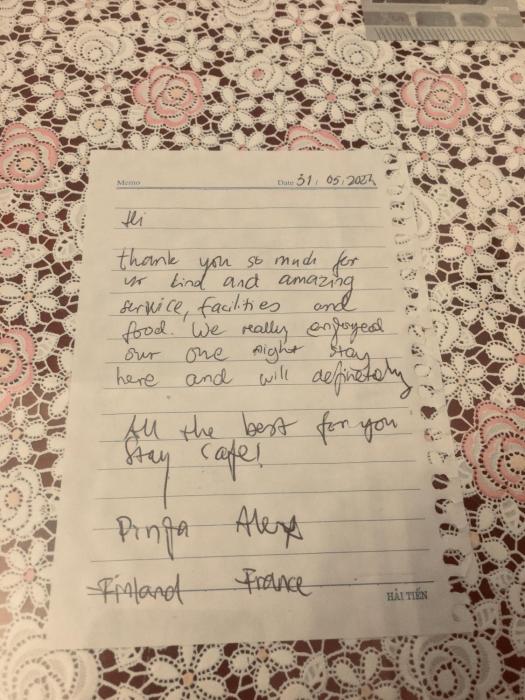 Memo Date 31 / 05, 202
Hi
thank you so much for
ur kind and amazing
service, facilities and
food. We really enjoyed
our one night stay
here and will definetely
All the best for you
Stay cafe!
Pinja Alexs
Finland France
HẢI TIẾN